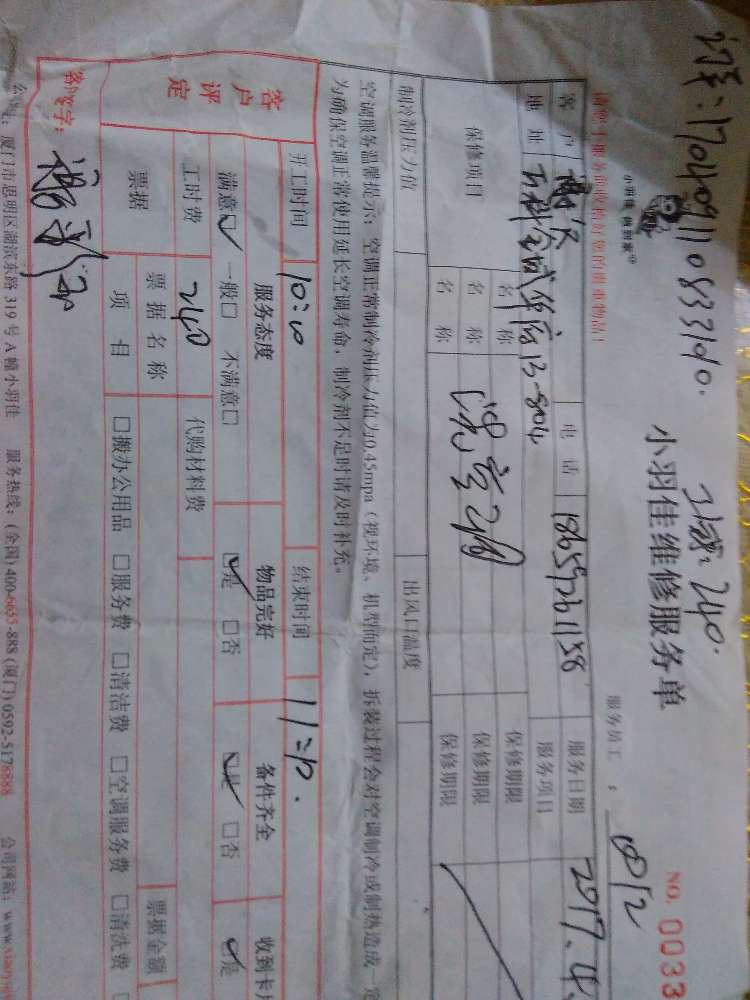 订单:170409110833190.
工费:240.
小羽佳维修服务单
小羽佳 做到家
服务员工: 0812
NO. 0033
请您于服务前收检好您的贵重物品:
客户 谢 电话 18659261158 服务日期 2017.4
地址 13-804 服务项目
保修项目 名称 保修期限
名称 保修期限
名称 保修期限
制冷剂压力值 出风口温度
空调服务温馨提示:空调正常制冷剂压力值为0.45mpa(视环境、机型而定),拆装过程会对空调制冷或制热造成一定
为确保空调正常使用延长空调寿命,制冷剂不足时请及时补充。
开工时间 10:10 结束时间 11:10.
客户评定 服务态度 物品完好 备件齐全 收到卡片
满意☑ 一般□ 不满意□ ☑是 □否 ☑是 □否 ☑是
工时费 240 代购材料费
票据 票据名称 票据金额
项目 □搬办公用品 □服务费 □清洁费 □空调服务费 □清洗费
客户签字:
公司:厦门市思明区湖滨东路 319 号 A 幢小羽佳 服务热线:(全国) 400-6655-888 (厦门) 0592-5178888 公司网站:www.xiaoyujia